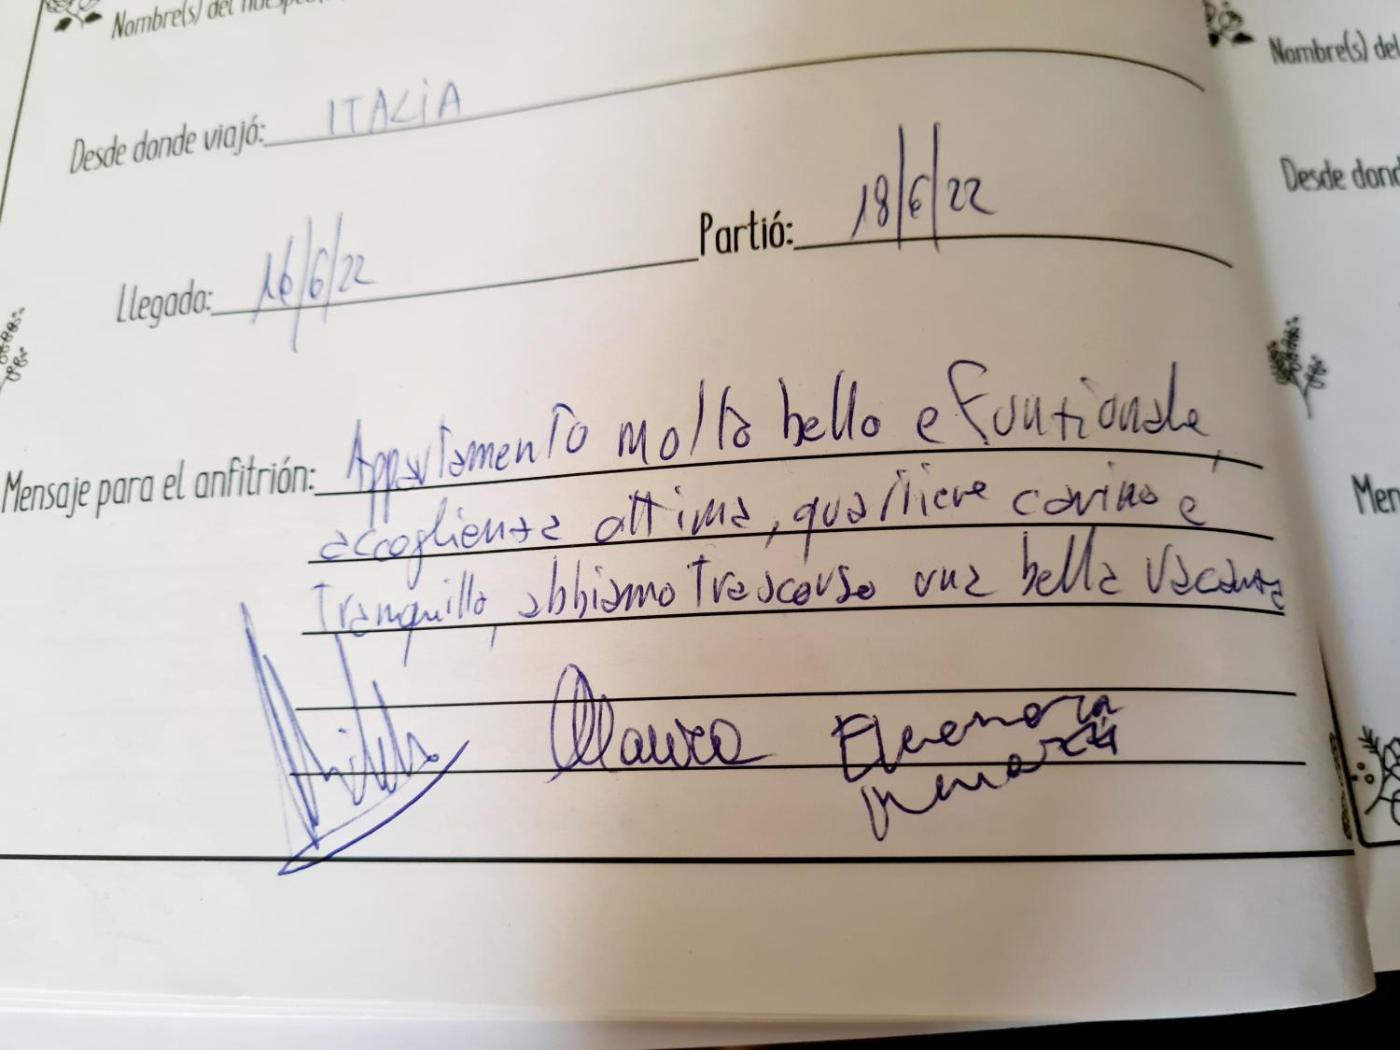 Nombre(s) del
Desde donde viajó: ITALIA
Llegada: 16/6/22 Partió: 18/6/22
Mensaje para el anfitrión: Appartamento molto bello e Funzionale,
accoglienza ottima, quartiere carino e
tranquillo, abbiamo trascorso una bella vacanza
Maura Eleonora
Nombre(s) del
Desde dond
Men